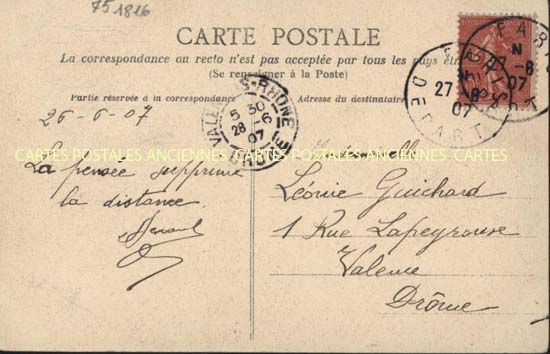 751816
CARTE POSTALE
La correspondance au recto n'est pas acceptée par tous les pays
(Se renseigner à la Poste)
Partie réservée à la correspondance
Adresse du destinataire
26-6-07
La pensée supprime
la distance.
CARTES POSTALES ANCIENNES CARTES POSTALES ANCIENNES CARTES
Mademoiselle
Léonie Guichard
1 Rue Lapeyrouse
Valence
Drôme
VALENCE-S-RHONE
5 30
28 -6
07
DROME
PARIS
DEPART
27 -6
07